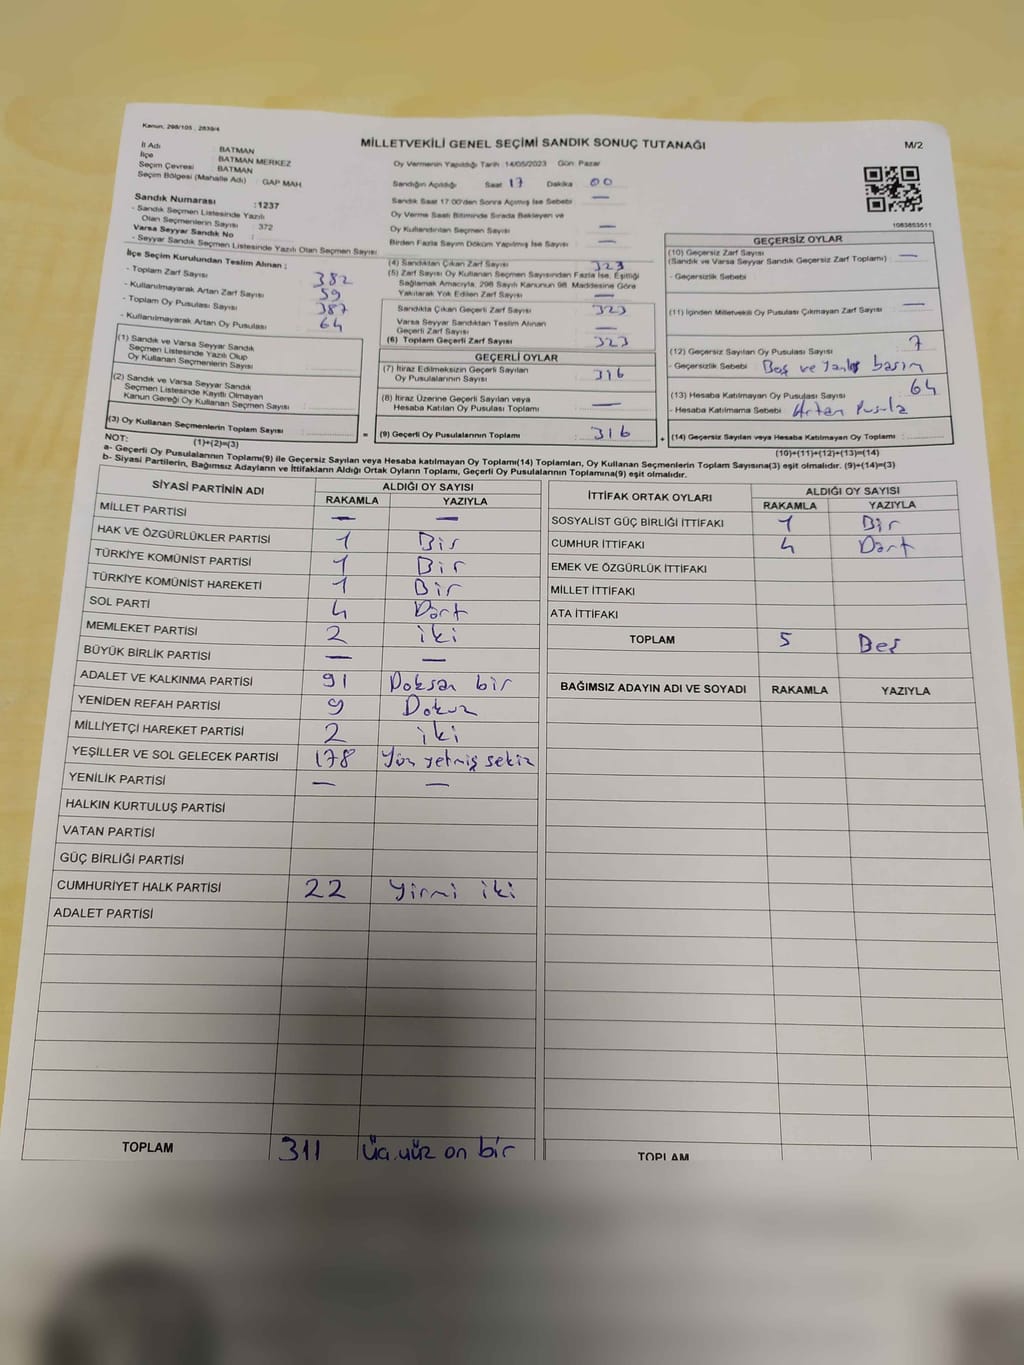 Kanun, 298/105 , 2839/4
MİLLETVEKİLİ GENEL SEÇİMİ SANDIK SONUÇ TUTANAĞI
M/2
İl Adı : BATMAN
İlçe : BATMAN MERKEZ
Seçim Çevresi : BATMAN
Seçim Bölgesi (Mahalle Adı) : GAP MAH
Sandık Numarası :1237
- Sandık Seçmen Listesinde Yazılı
Olan Seçmenlerin Sayısı : 372
Varsa Seyyar Sandık No :
- Seyyar Sandık Seçmen Listesinde Yazılı Olan Seçmen Sayısı
İlçe Seçim Kurulundan Teslim Alınan ;
- Toplam Zarf Sayısı 382
- Kullanılmayarak Artan Zarf Sayısı 59
- Toplam Oy Pusulası Sayısı 387
- Kullanılmayarak Artan Oy Pusulası 64
(1) Sandık ve Varsa Seyyar Sandık
Seçmen Listesinde Yazılı Olup
Oy Kullanan Seçmenlerin Sayısı
(2) Sandık ve Varsa Seyyar Sandık
Seçmen Listesinde Kayıtlı Olmayan
Kanun Gereği Oy Kullanan Seçmen Sayısı
(3) Oy Kullanan Seçmenlerin Toplam Sayısı
(1)+(2)=(3)
Oy Vermenin Yapıldığı Tarih 14/05/2023 Gün Pazar
Sandığın Açıldığı Saat 17 Dakika 00
Sandık Saat 17:00'den Sonra Açılmış İse Sebebi —
Oy Verme Saati Bitiminde Sırada Bekleyen ve
Oy Kullandırılan Seçmen Sayısı —
Birden Fazla Sayım Döküm Yapılmış İse Sayısı —
(4) Sandıktan Çıkan Zarf Sayısı 323
(5) Zarf Sayısı Oy Kullanan Seçmen Sayısından Fazla İse, Eşitliği
Sağlamak Amacıyla, 298 Sayılı Kanunun 98. Maddesine Göre
Yakılarak Yok Edilen Zarf Sayısı —
Sandıkta Çıkan Geçerli Zarf Sayısı 323
Varsa Seyyar Sandıktan Teslim Alınan
Geçerli Zarf Sayısı —
(6) Toplam Geçerli Zarf Sayısı 323
GEÇERLİ OYLAR
(7) İtiraz Edilmeksizin Geçerli Sayılan
Oy Pusulalarının Sayısı 316
(8) İtiraz Üzerine Geçerli Sayılan veya
Hesaba Katılan Oy Pusulası Toplamı —
= (9) Geçerli Oy Pusulalarının Toplamı 316 +
1083853511
GEÇERSİZ OYLAR
(10) Geçersiz Zarf Sayısı
(Sandık ve Varsa Seyyar Sandık Geçersiz Zarf Toplamı) —
- Geçersizlik Sebebi
(11) İçinden Milletvekili Oy Pusulası Çıkmayan Zarf Sayısı —
(12) Geçersiz Sayılan Oy Pusulası Sayısı 7
- Geçersizlik Sebebi Boş ve Yanlış basım
(13) Hesaba Katılmayan Oy Pusulası Sayısı 64
- Hesaba Katılmama Sebebi Artan Pusula
(14) Geçersiz Sayılan veya Hesaba Katılmayan Oy Toplamı :
(10)+(11)+(12)+(13)=(14)
NOT:
a- Geçerli Oy Pusulalarının Toplamı(9) ile Geçersiz Sayılan veya Hesaba katılmayan Oy Toplamı(14) Toplamları, Oy Kullanan Seçmenlerin Toplam Sayısına(3) eşit olmalıdır. (9)+(14)=(3)
b- Siyasi Partilerin, Bağımsız Adayların ve İttifakların Aldığı Ortak Oyların Toplamı, Geçerli Oy Pusulalarının Toplamına(9) eşit olmalıdır.
SİYASİ PARTİNİN ADI ALDIĞI OY SAYISI
RAKAMLA YAZIYLA
MİLLET PARTİSİ — —
HAK VE ÖZGÜRLÜKLER PARTİSİ 1 Bir
TÜRKİYE KOMÜNİST PARTİSİ 1 Bir
TÜRKİYE KOMÜNİST HAREKETİ 1 Bir
SOL PARTİ 4 Dört
MEMLEKET PARTİSİ 2 iki
BÜYÜK BİRLİK PARTİSİ — —
ADALET VE KALKINMA PARTİSİ 91 Doksan bir
YENİDEN REFAH PARTİSİ 9 Dokuz
MİLLİYETÇİ HAREKET PARTİSİ 2 iki
YEŞİLLER VE SOL GELECEK PARTİSİ 178 Yüz yetmiş sekiz
YENİLİK PARTİSİ — —
HALKIN KURTULUŞ PARTİSİ
VATAN PARTİSİ
GÜÇ BİRLİĞİ PARTİSİ
CUMHURİYET HALK PARTİSİ 22 Yirmi iki
ADALET PARTİSİ
TOPLAM 311 üç yüz on bir
İTTİFAK ORTAK OYLARI ALDIĞI OY SAYISI
RAKAMLA YAZIYLA
SOSYALİST GÜÇ BİRLİĞİ İTTİFAKI 1 Bir
CUMHUR İTTİFAKI 4 Dört
EMEK VE ÖZGÜRLÜK İTTİFAKI
MİLLET İTTİFAKI
ATA İTTİFAKI
TOPLAM 5 Beş
BAĞIMSIZ ADAYIN ADI VE SOYADI RAKAMLA YAZIYLA
TOPLAM